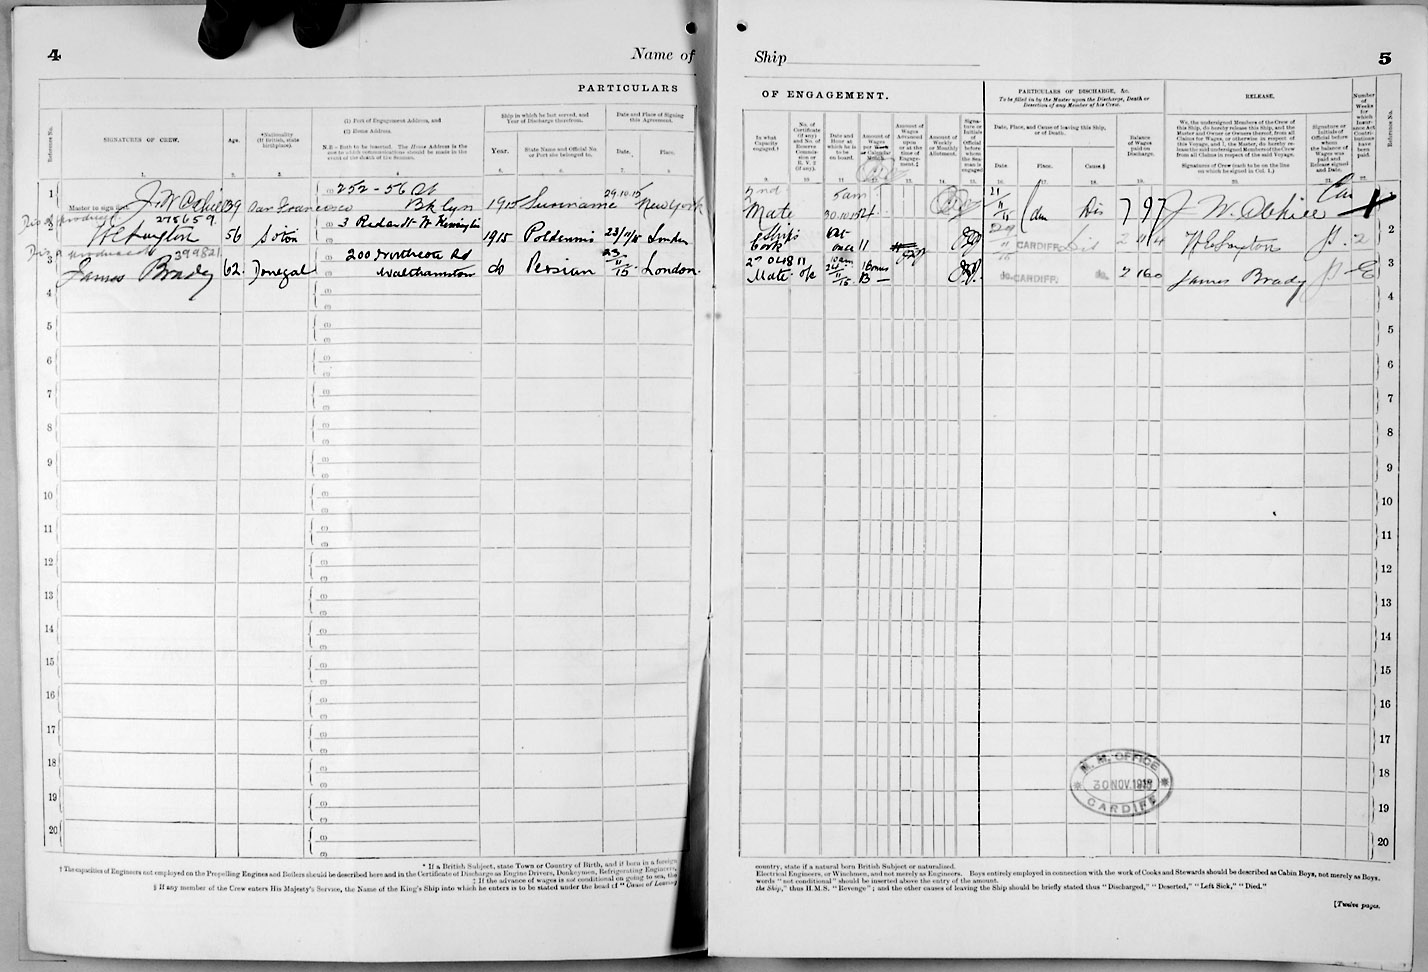 4
Name of
PARTICULARS
Reference No.
SIGNATURES OF CREW.
Age.
*Nationality
(If British, state
birthplace).
(1) Port of Engagement Address, and
(2) Home Address.
N.B.—Both to be inserted. The Home Address is the
one to which communications should be made in the
event of the death of the Seaman.
Ship in which he last served, and
Year of Discharge therefrom.
Year.
State Name and Official No.
or Port she belonged to.
Date and Place of Signing
this Agreement.
Date.
Place.
1
Master to sign first
39
San Francisco
252-56 St
Bklyn
1915
Suriname
29.10.15
New York
Dis A produced
275659
2
56
Soton
3
1915
23/11/15
London
Dis A produced
399821
3
James Brady
62
Donegal
200 Northcote Rd
Walthamstow
do
Persian
23/11/15
London.
4
5
6
7
8
9
10
11
12
13
14
15
16
17
18
19
20
* If a British Subject, state Town or Country of Birth, and if born in a foreign
† The capacities of Engineers not employed on the Propelling Engines and Boilers should be described here and in the Certificate of Discharge as Engine Drivers, Donkeymen, Refrigerating Engineers,
‡ If the advance of wages is not conditional on going to sea, the
§ If any member of the Crew enters His Majesty's Service, the Name of the King's Ship into which he enters is to be stated under the head of "Cause of Leaving
Ship
5
OF ENGAGEMENT.
PARTICULARS OF DISCHARGE, &c.
To be filled in by the Master upon the Discharge, Death or
Desertion of any Member of his Crew.
RELEASE.
In what
Capacity
engaged
No. of
Certificate
(if any)
and No. of
Reserve
Commis-
sion or
R. V. 2
(if any).
Date and
Hour at
which he is
to be
on board.
Amount of
Wages
per Week
or Calendar
Month.
Amount of
Wages
Advanced
upon
or at the
time of
Engage-
ment.‡
Amount of
Weekly
or Monthly
Allotment.
Signa-
ture or
Initials of
Official
before
whom
the Sea-
man is
engaged
Date, Place, and Cause of leaving this Ship,
or of Death.
Date.
Place.
Cause.§
Balance
of Wages
paid on
Discharge.
We, the undersigned Members of the Crew of
this Ship, do hereby release this Ship, and the
Master and Owner or Owners thereof, from all
Claims for Wages, or otherwise in respect of
this Voyage, and I, the Master, do hereby re-
lease the undersigned Members of the Crew
from all Claims in respect of the said Voyage.
Signatures of Crew (each to be on the line
on which he signed in Col. 1.)
Signature or
Initials of
Official before
whom
the balance of
Wages was
paid and
Release signed
and Date.
Number
of
Weeks
for
which
Insur-
ance Act
Contri-
butions
have
been
paid.
Reference No.
2nd
Mate
5am
30.10.15
Dis
1
Ships
Cook
once
11
CARDIFF
2
2
Mate
Bonus
do
CARDIFF
do
James Brady
3
4
5
6
7
8
9
10
11
12
13
14
15
16
17
18
19
20
M. M. OFFICE
30 NOV. 1915
CARDIFF
country, state if a natural born British Subject or naturalized.
Electrical Engineers, or Winchmen, and not merely as Engineers. Boys entirely employed in connection with the work of Cooks and Stewards should be described as Cabin Boys, not merely as Boys.
words "not conditional" should be inserted above the entry of the amount.
the Ship," thus H.M.S. "Revenge"; and the other causes of leaving the Ship should be briefly stated thus "Discharged," "Deserted," "Left Sick," "Died."
[Twelve pages.